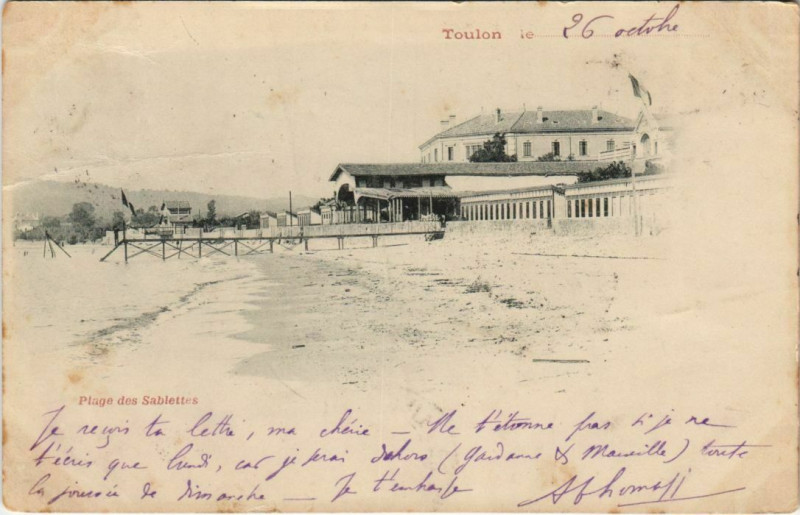 Toulon le 26 octobre
Plage des Sablettes
Je reçois ta lettre, ma chérie — Ne t'étonne pas si je ne
t'écris que lundi, car je serai dehors (Gardanne & Marseille) toute
la journée de dimanche — Je t'embrasse